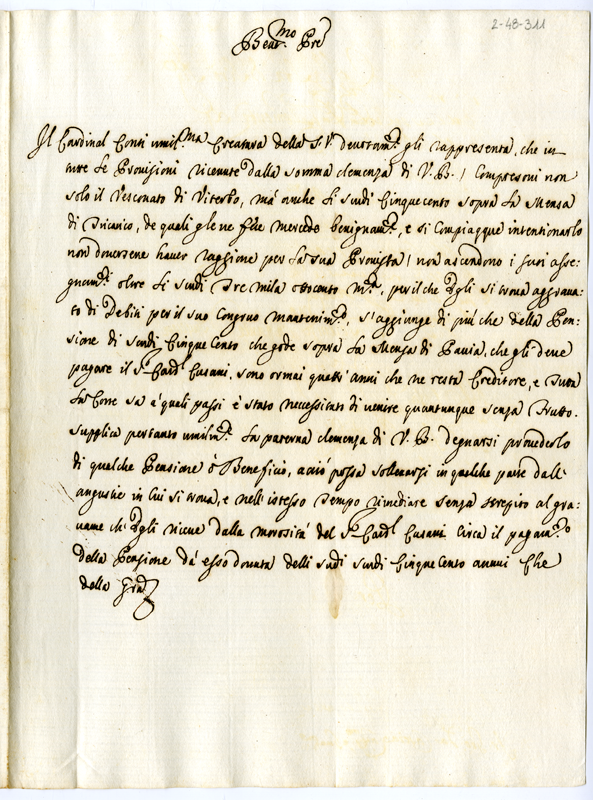 2-48-311
Beat.mo Pre
Il Cardinal Conti umil.ma Creatura della S.V. devotam.e gli rappresenta, che in
tutte le Provisioni ricevute dalla somma clemenza di V.B. / Compresoni non
solo il Vescovato di Viterbo, mà anche li scudi Cinquecento sopra la Mensa
di Tricarico, de quali gle ne fece mercede benignam.e, e si Compiacque intentionarlo
non doversene haver raggione per la sua Provista / non ascendono i suoi asse:
gnam.ti oltre li scudi Tre mila ottocento m.ta, per il che Egli si trova aggrava:
to di Debiti per il suo Congruo mantenim.to, s'aggiunge di più che della Pen:
sione di scudi Cinque Cento che gode sopra la Mensa di Pavia, che gli deve
pagare il S.r Card.l Cusani, sono ormai quattr'anni che ne resta Creditore, e Tutta
la Corte sa à quali passi è stato necessitato di venire quantunque senza frutto.
supplica pertanto umilm.te la paterna clemenza di V.B. degnarsi provederlo
di qualche Pensione ò Beneficio, acciò possa sollevarsi in qualche parte dall'
angustie in Cui si trova, e nell'istesso Tempo rimediare senza strepito al gra:
vame ch'Egli riceve dalla morosità del S.r Card.l Cusani Circa il pagam.to
della Pensione dà esso dovuta delli sudi scudi Cinque Cento annui Che
della Gra